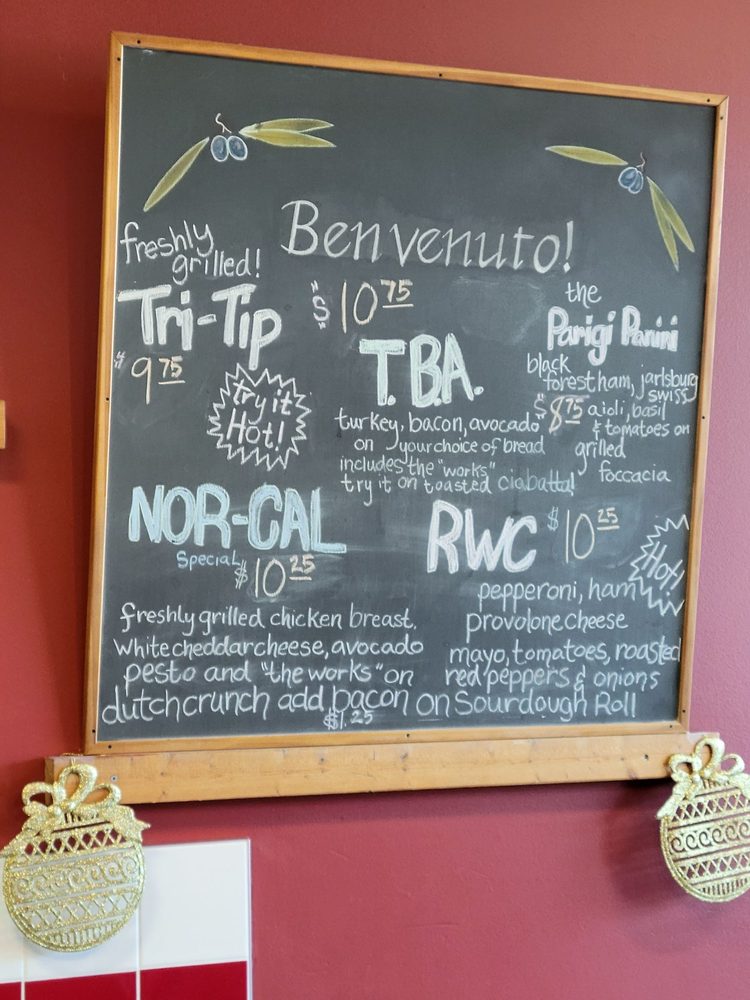 Benvenuto!
freshly
grilled!
Tri-Tip
$9 75
try it
Hot!
$10 75
T.B.A.
turkey, bacon, avocado
on your choice of bread
includes the "works"
try it on toasted ciabatta!
the
Parigi Panini
black
forest ham, jarlsburg
swiss
$8 75 aioli, basil
& tomatoes on
grilled
foccacia
NOR-CAL
Special
$10 25
freshly grilled chicken breast.
white cheddar cheese, avocado
pesto and "the works" on
dutch crunch add bacon
$1.25
RWC $10 25
Hot!
pepperoni, ham
provolone cheese
mayo, tomatoes, roasted
red peppers & onions
on Sourdough Roll